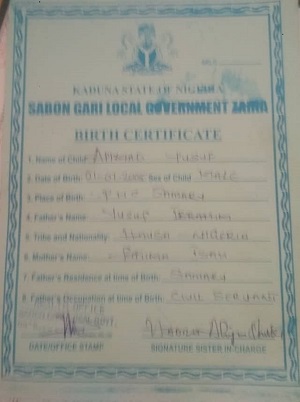 KADUNA STATE OF NIGERIA
SABON GARI LOCAL GOVERNMENT ZARIA
BIRTH CERTIFICATE
1. Name of Child Ahmad Yusuf
2. Date of Birth 01-01- Sex of Child Male
3. Place of Birth PHC Samaru
4. Father's Name Yusuf Ibrahim
5. Tribe and Nationality Hausa Nigeria
6. Mother's Name Fatima
7. Father's Residence at time of Birth Samaru
8. Father's Occupation at time of Birth Civil Servant
DATE/OFFICE STAMP SIGNATURE SISTER IN CHARGE